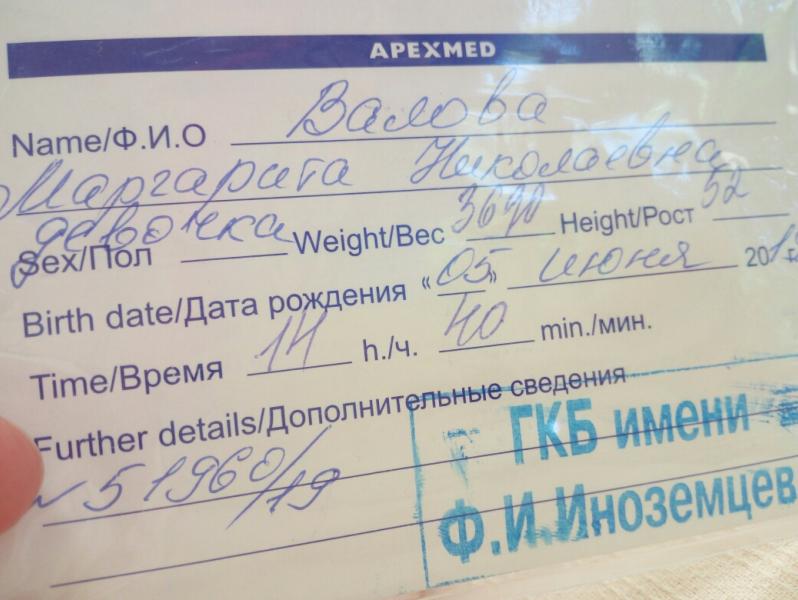 APEXMED
Name/Ф.И.О Валова
Маргарита Николаевна
девочка
Sex/Пол Weight/Вес 3690 Height/Рост 52
Birth date/Дата рождения «05» июня 201
Time/Время 14 h./ч. 40 min./мин.
Further details/Дополнительные сведения
51960/19
ГКБ имени
Ф.И.Иноземцев